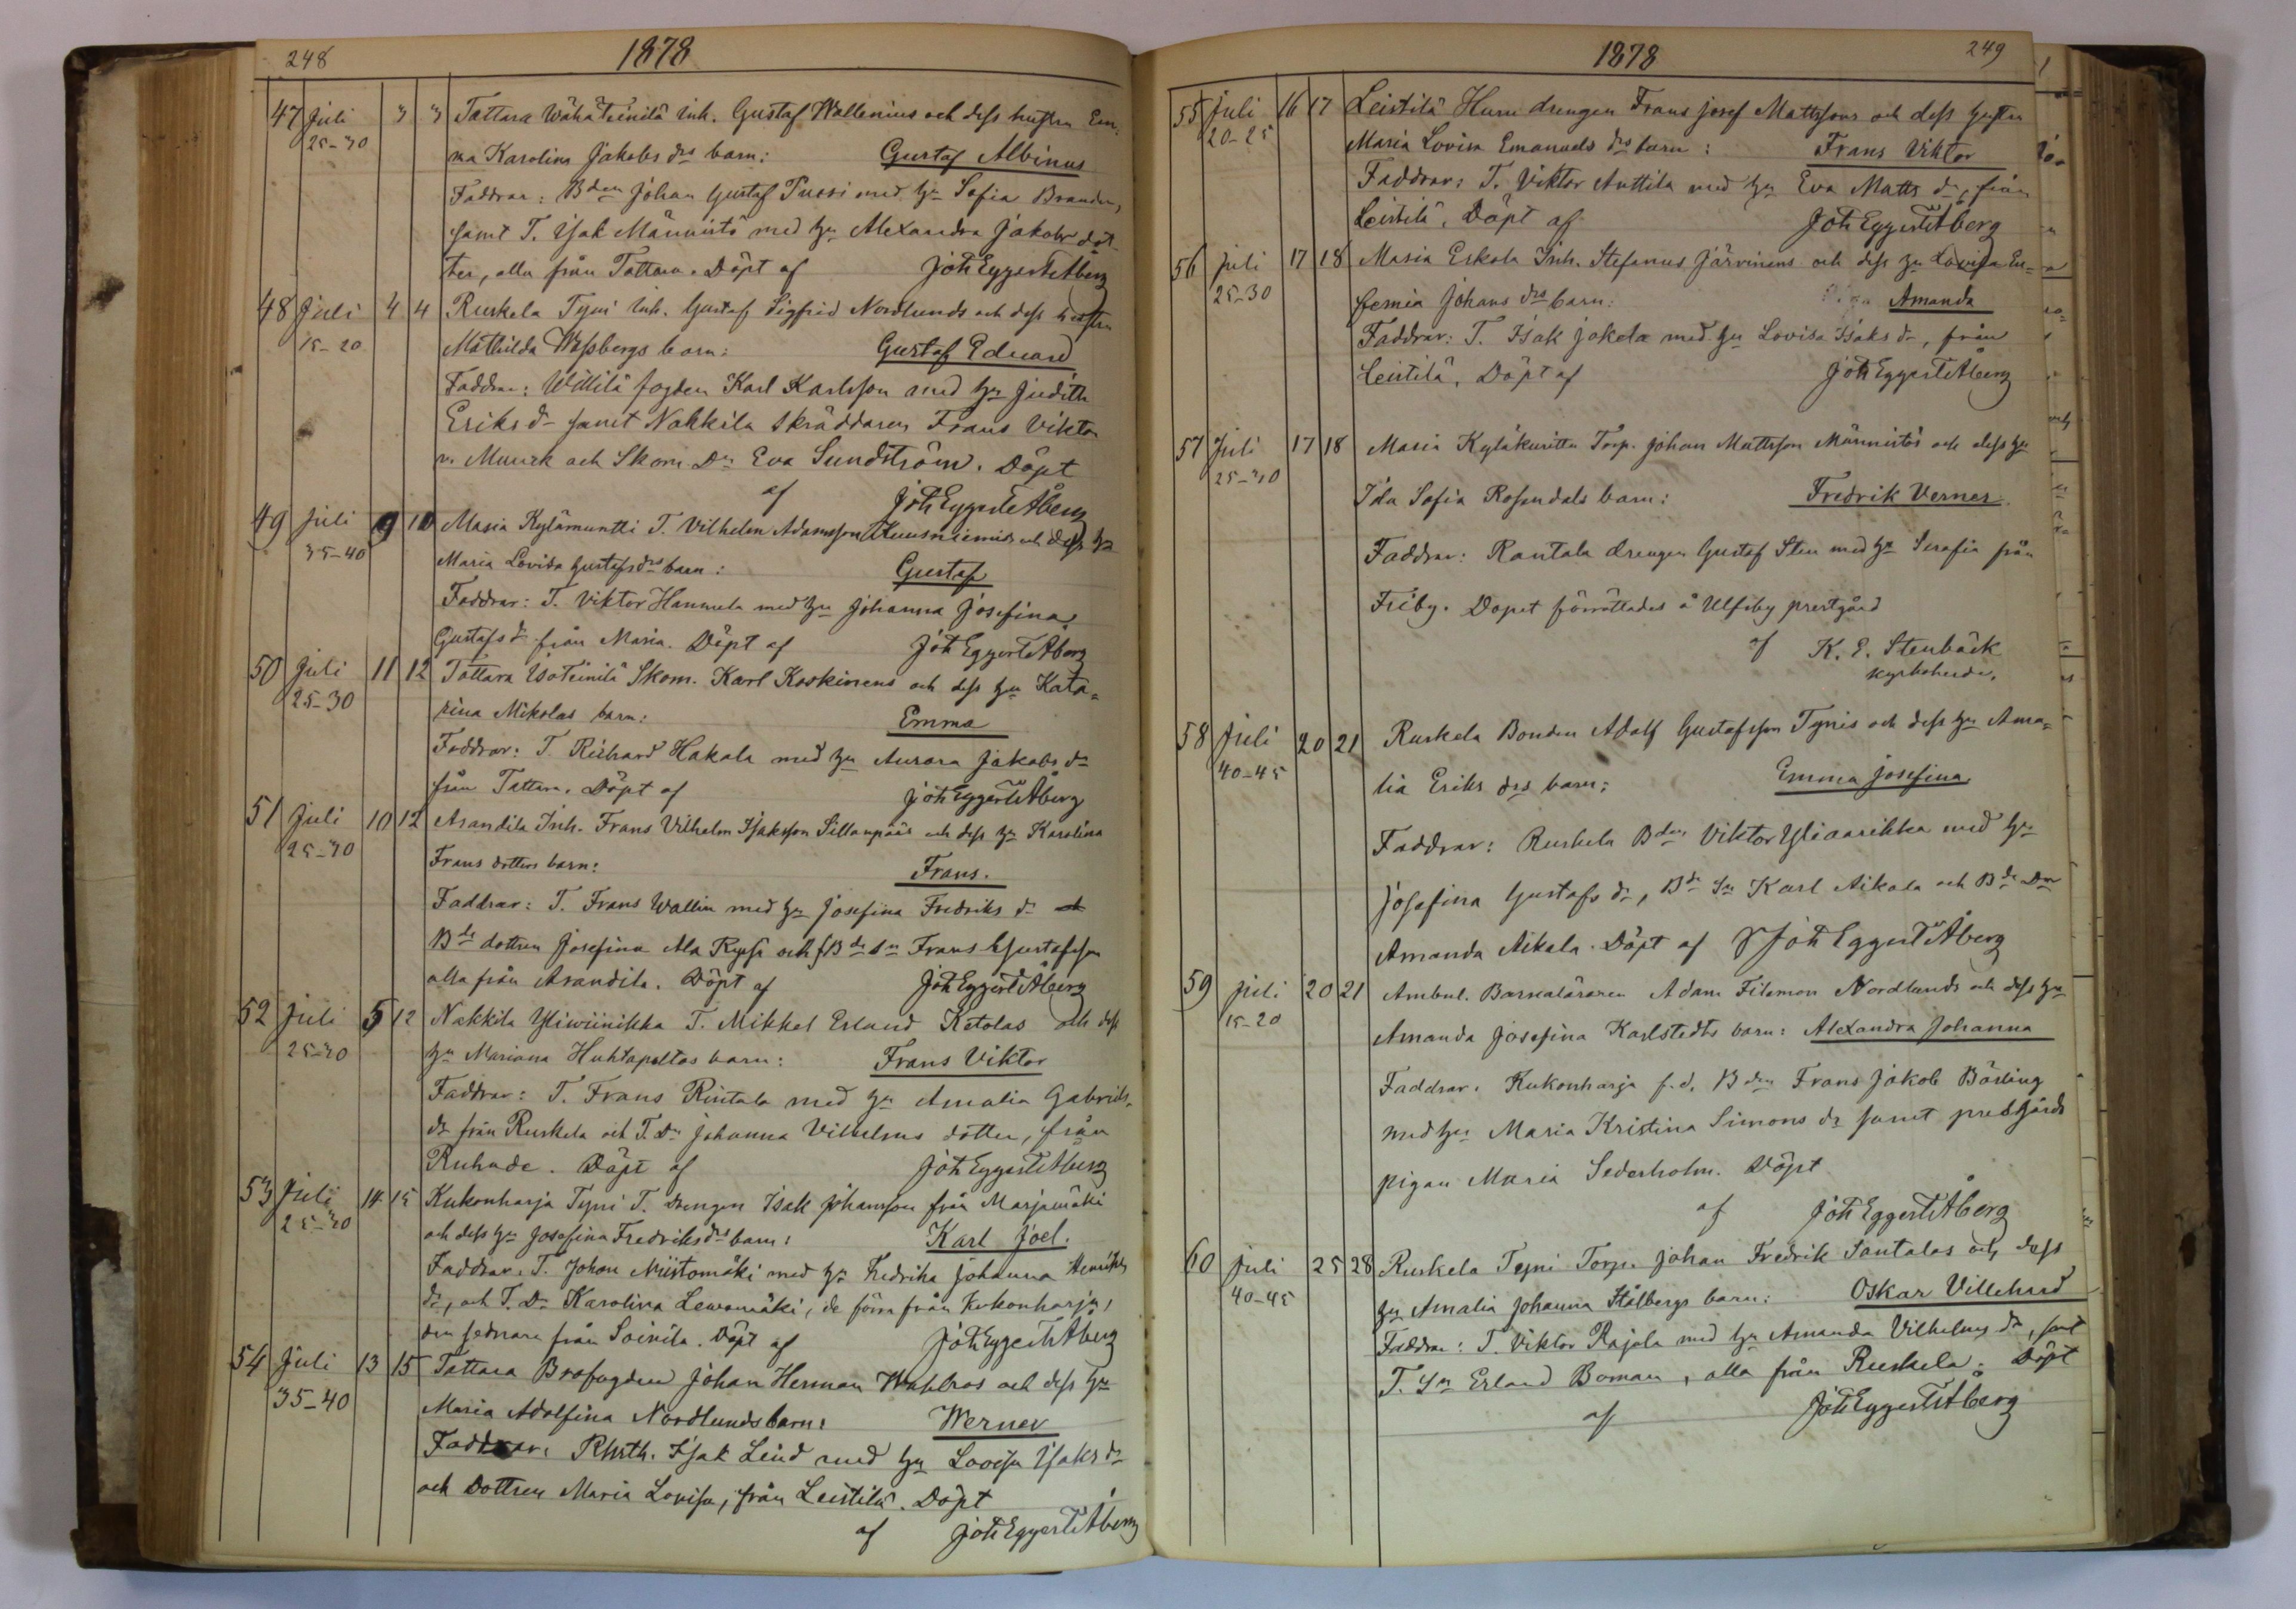 248 1878
47 Juli 3 3 Tattara Wähäteinilä Inh. Gustaf Wallenius och dess hustru Em-
25-30 ma Karolina Jakobs drs barn: Gustaf Albinus
Faddrar: Bden Johan Gustaf Pussi med hu Sofia Brander,
samt T. Isak Männistö med hu Alexandra Jakobs döt-
ter, alla från Tattara. Döpt af Joh Eggert Åberg
48 Juli 4 4 Ruskela Tyni Inh. Gustaf Sigfrid Nordlunds och dess hustru
15-20 Mathilda Wassbergs barn: Gustaf Eduard
Faddrar: Willilä fogden Karl Karlsson med hu Judith
Eriks dr samt Nakkila Skräddaren Frans Viktor
v. Munck och Skom. Dr Eva Sundström. Döpt
af Joh Eggert Åberg
49 Juli 9 10 Masia Kylämuntti T. Vilhelm Adamsson Kuusniemis och dess hu
35-40 Maria Lovisa Gustafs drs barn: Gustaf
Faddrar: T. Viktor Hannula med hu Johanna Josefina
Gustafs dr från Masia. Döpt af Joh Eggert Åberg
50 Juli 11 12 Tattara Isoteinilä Skom. Karl Koskinens och dess hu Kata-
25-30 rina Mikolas barn: Emma
Faddrar: T. Richard Hakala med hu Aurora Jakobs dr
från Tattara. Döpt af Joh Eggert Åberg
51 Juli 10 12 Arandila Inh. Frans Vilhelm Isaksson Sillanpääs och dess hu Karolina
25-30 Frans dotters barn: Frans.
Faddrar: T. Frans Wallin med hu Josefina Fredriks dr
Bde dottren Josefina Ala och Bde sn Frans Gustafsson
alla från Arandila. Döpt af Joh Eggert Åberg
52 Juli 5 12 Nakkila Yliwiinikka T. Mikkel Erland Ketolas och dess
25-30 hu Mariana Huhtapeltos barn: Frans Viktor
Faddrar: T. Frans Rintala med hu Amalia Gabriels
dr från Ruskela och T. Dr Johanna Vilhelms dotter, från
Ruhade. Döpt af Joh Eggert Åberg
53 Juli 14 15 Kukonharja Tyni T. drengen Isak Johansson från Marjamäki
25-30 och dess hu Josefina Fredriks drs barn: Karl Joel.
Faddrar: T. Johan Niistomäki med hu Fredrika Johanna Henriks
dr, och T. Dr Karolina Lewomäki, de förra från Kukonharja,
den sednare från Soinila. Döpt af Joh Eggert Åberg
54 Juli 13 15 Tattara Brofogden Johan Herman Wahlros och dess hu
35-40 Maria Adolfina Nordlunds barn: Werner
Faddrar: Rusth. Isak Leid med hu Lovisa Isaks dr
och Dottren Maria Lovisa, från Leistilä. Döpt
af Joh Eggert Åberg
1878 249
55 Juli 16 17 Leistilä Huru drengen Frans Josef Mattssons och dess hustru
20-25 Maria Lovisa Emanuels drs barn: Frans Viktor
Faddrar: T. Viktor Anttila med hu Eva Matts dr, från
Leistilä. Döpt af Joh Eggert Åberg
56 Juli 17 18 Masia Eskola Inh. Stefanus Järvinens och dess hu Lovisa Eu-
25-30 femia Johans drs barn: Amanda
Faddrar: T. Isak Jokela med hu Lovisa Isaks dr, från
Leistilä. Döpt af Joh Eggert Åberg
57 Juli 17 18 Masia Kyläkuritta Torp. Johan Mattsson Männistös och dess hu
25-30 Ida Sofia Rosendals barn: Fredrik Verner
Faddrar: Rantala drengen Gustaf Sten med hu Serafia från
Friby. Dopet förrättades å Ulfsby prestgård
af K. E. Stenbäck
kyrkoherde.
58 Juli 20 21 Ruskela Bonden Adolf Gustafsson Tynis och dess hu Ama-
40-45 lia Eriks drs barn: Emma Josefina
Faddrar: Ruskela Bden Viktor Yliaarikka med hu
Josefina Gustafs dr, Bde Sn Karl Aikala och Bde Dn
Amanda Aikala. Döpt af Joh Eggert Åberg
59 Juli 20 21 Ambul. Barnaläraren Adam Filemon Nordlunds och dess hu
15-20 Amanda Josefina Karlstedts barn: Alexandra Johanna
Faddrar: Kukonharja f.d. Bden Frans Jakob Bärling
med hu Maria Kristina Simons dr samt prestgårds
pigan Maria Sederholm. Döpt
af Joh Eggert Åberg
60 Juli 25 28 Ruskela Tyni Torp. Johan Fredrik Santalas och dess
40-45 hu Amalia Johanna Stålbergs barn: Oskar Villehard
Faddrar: T. Viktor Rajala med hu Amanda Vilhelms dr, samt
T. Sn Erland Boman, alla från Ruskela. Döpt
af Joh Eggert Åberg